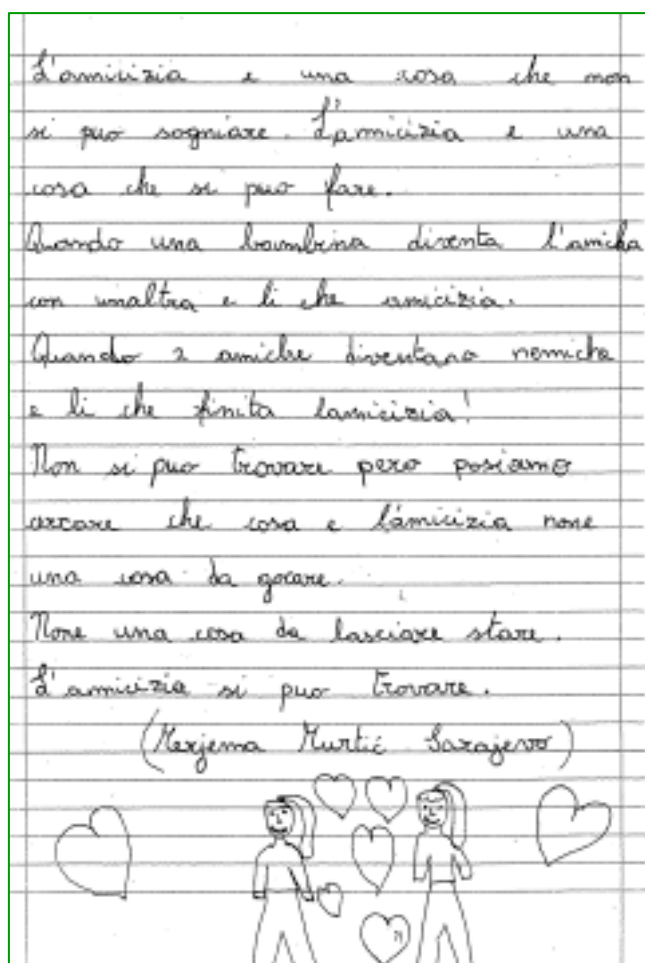 L'amicizia e una cosa che non
si puo sogniare. L'amicizia e una
cosa che si puo fare.
Quando una bambina diventa l'amicha
con unaltra e li che amicizia.
Quando 2 amiche diventano nemiche
e li che finita lamicizia!
Non si puo trovare pero posiamo
cercare che cosa e l'amicizia none
una cosa da gocare.
None una cosa da lasciare stare.
L'amicizia si puo trovare.
(Merjema Murtić Sarajevo)